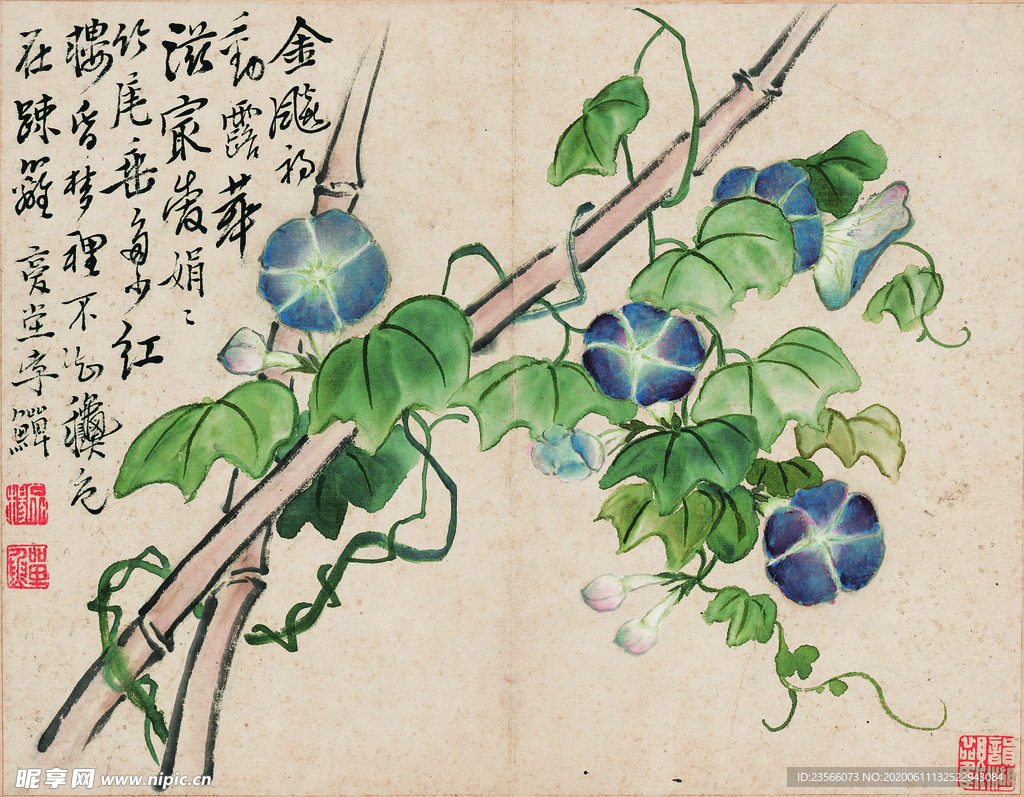 金飈初
動露華
滋㝡愛娟〻
竹尾垂多少紅
樓昏梦裡不知龝色
在踈籬 复堂李鱓
昵享网 www.nipic.cn
ID:23566073 NO:20200611132522943084